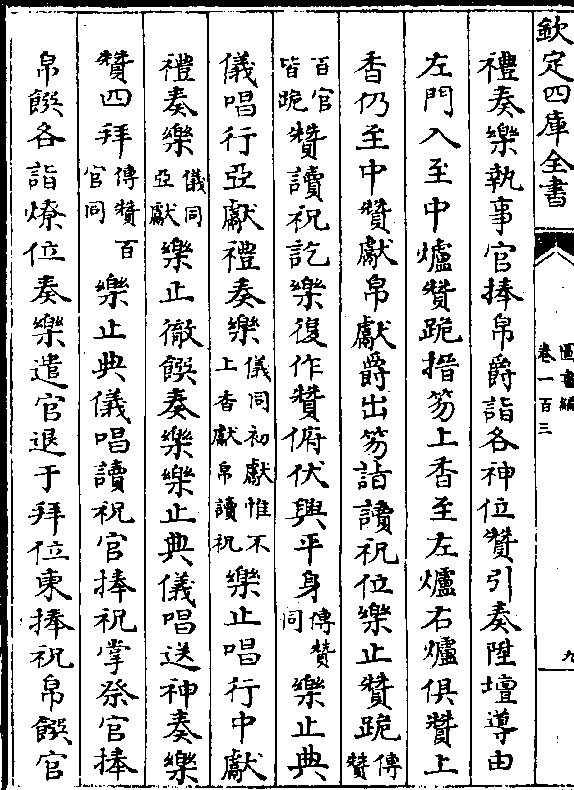 欽定四庫全書
圖書編
卷一百三
九
禮奏樂執事官捧帛爵詣各神位贊引奏陞壇導由
左門入至中爐贊跪搢笏上香至左爐右爐俱贊上
香仍至中贊獻帛獻爵出笏詣讀祝位樂止贊跪傳贊
百官皆跪贊讀祝訖樂復作贊俯伏興平身傳贊同樂止典
儀唱行亞獻禮奏樂儀同初獻惟不上香獻帛讀祝樂止唱行中獻
禮奏樂儀同亞獻樂止徹饌奏樂樂止典儀唱送神奏樂
贊四拜傳贊百官同樂止典儀唱讀祝官捧祝掌祭官捧
帛饌各詣燎位奏樂遣官退于拜位東捧祝帛饌官